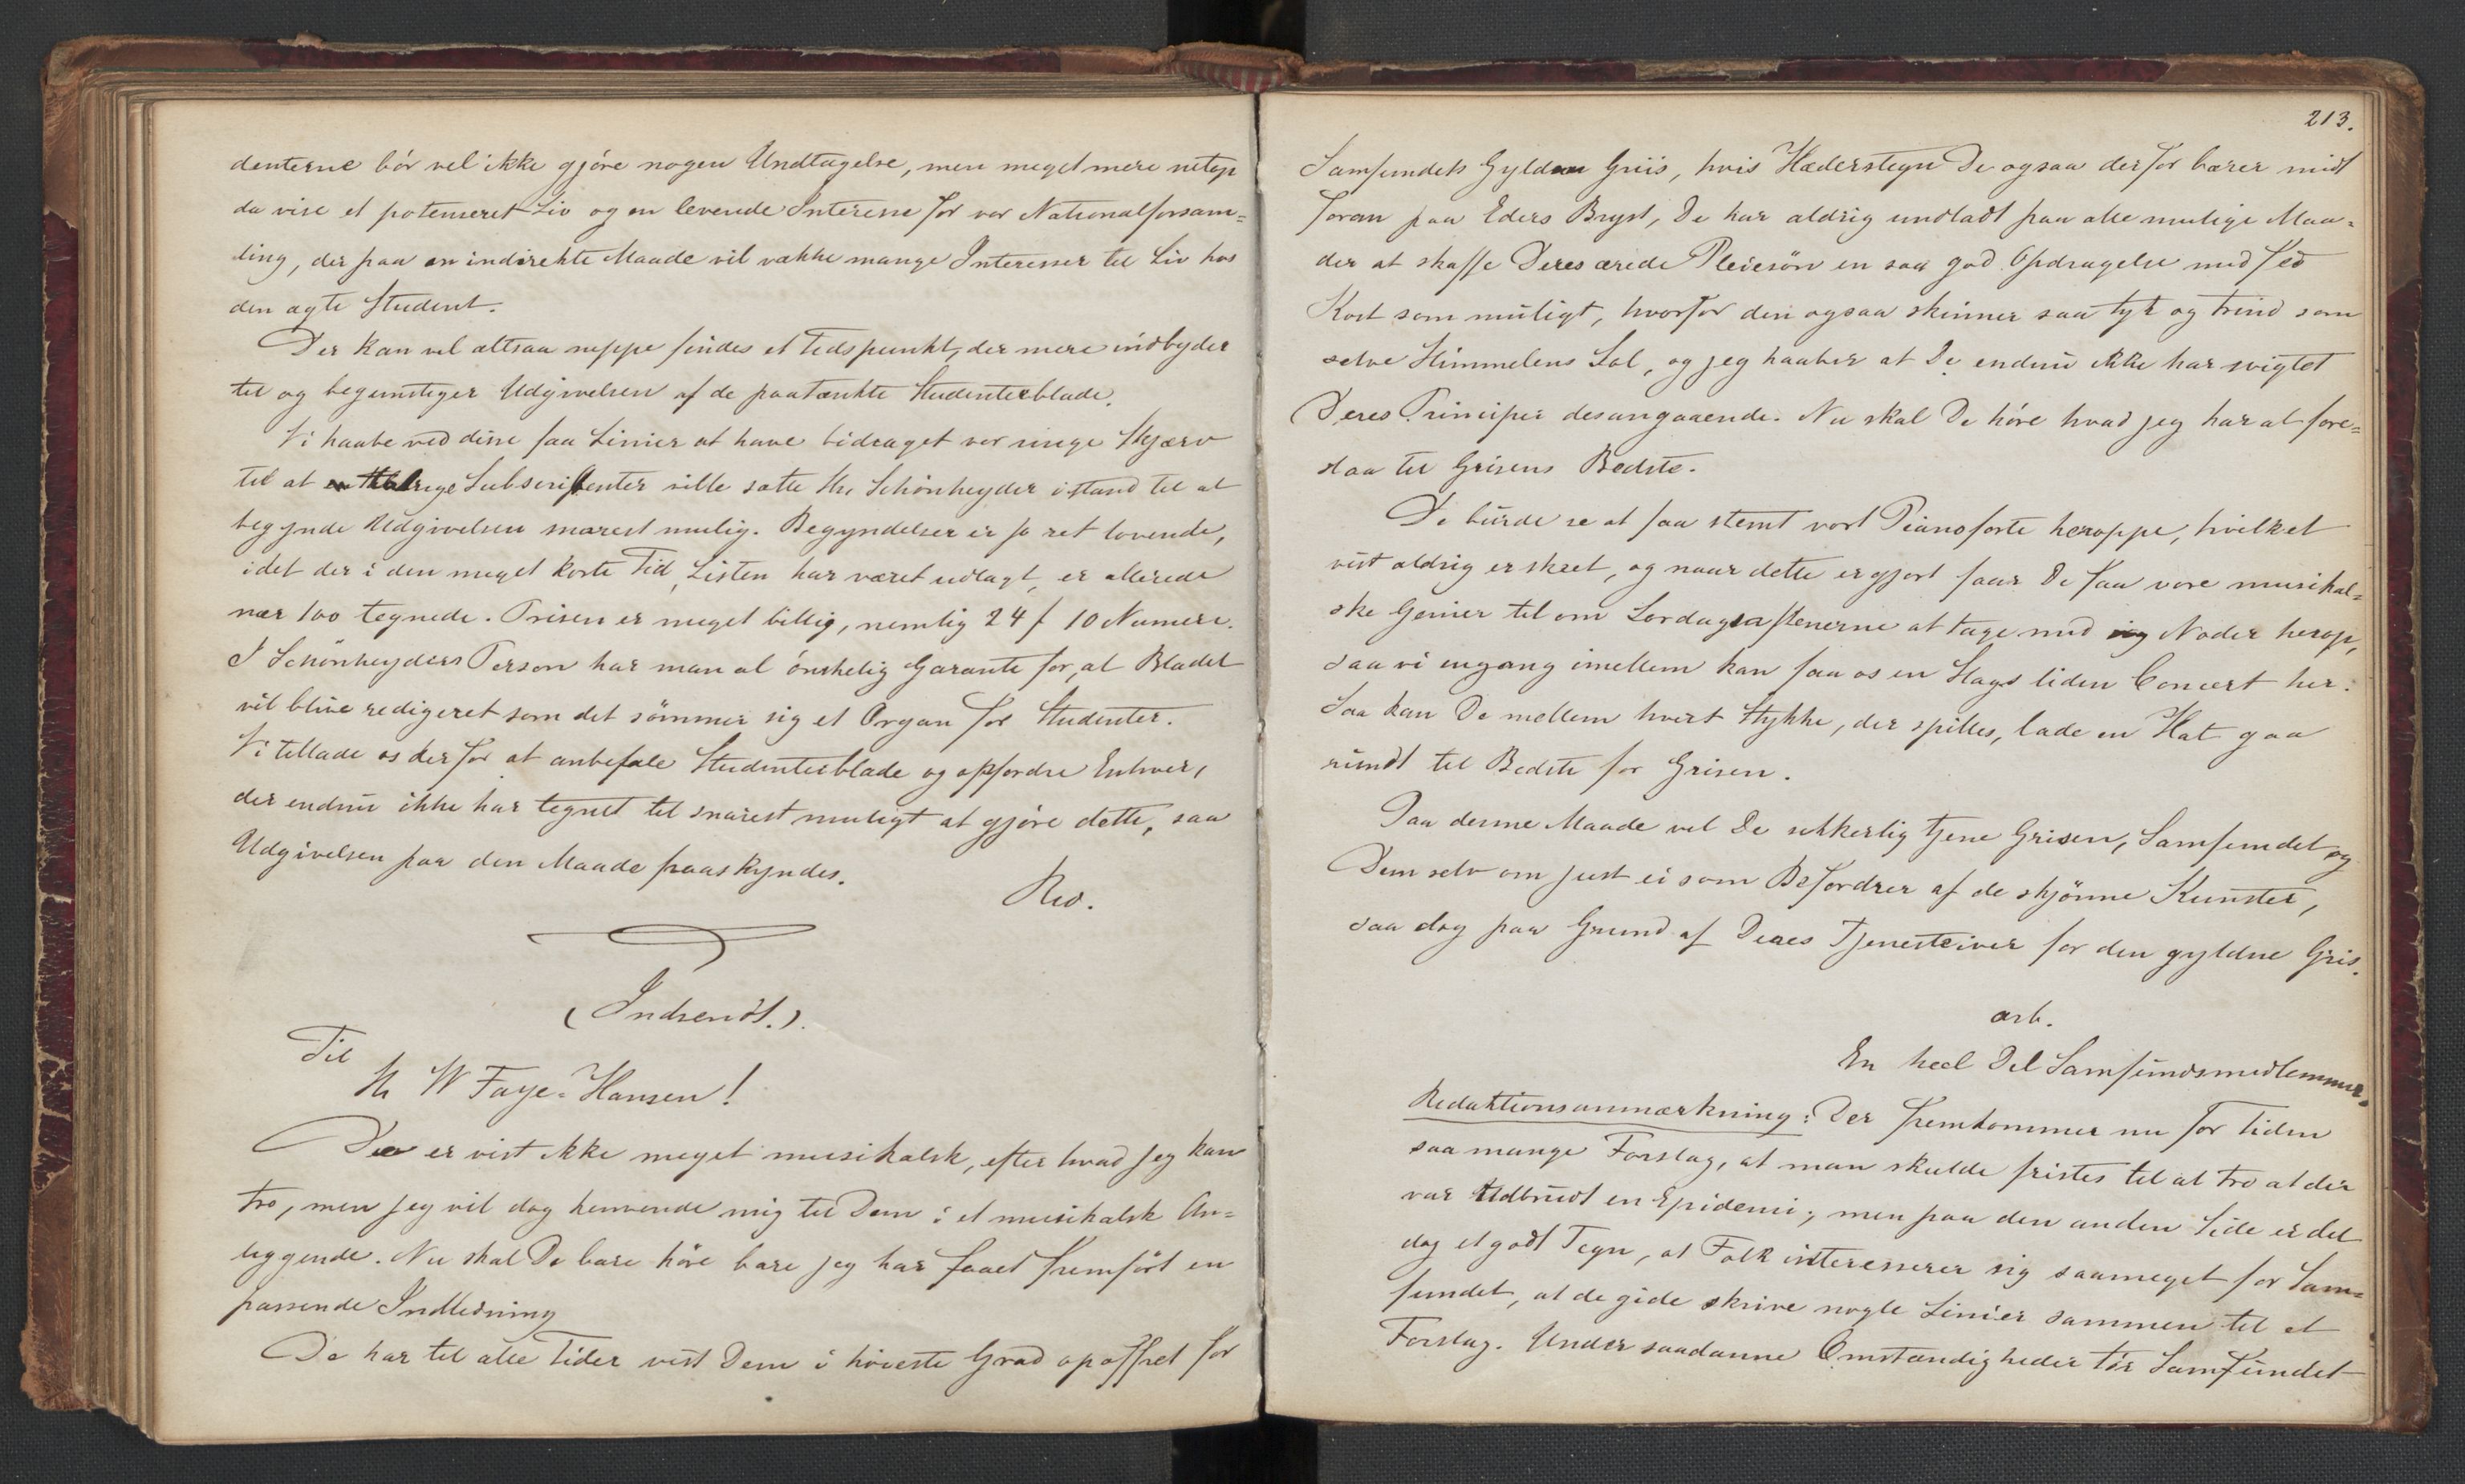 denterne bör vel ikke gjöre nogen Undtagelse, men meget mere netop
da vise et potenseret Liv og en levende Interesse for vor Nationalforsam=
ling, der paa en indirekte Maade vil vække mange Interesser til Liv hos
den ægte Student.
Der kan vel altsaa neppe findes et Tidspunkt, der mere indbyder
til og begunstiger Udgivelsen af de paatænkte Studenterblade.
Vi haabe ved disse faa Linier at have bidraget vor ringe Skjærv
til at talrige Subscribenter ville sætte Hr Schönheyder istand til at
begynde Udgivelsen snarest mulig. Begyndelsen er jo ret lovende,
idet der i den meget korte Tid, Listen har været udlagt, er allerede
nær 100 tegnede. Prisen er meget billig, nemlig 24 f 10 Numere.
I Schönheyders Person har man al önskelig Garanti for, at Bladet
vil blive redigeret som det sömmer sig et Organ for Studenter.
Vi tillade os derfor at anbefale Studenterblade og opfordre Enhver,
der endnu ikke har tegnet til snarest muligt at gjöre dette, saa
Udgivelsen paa den Maade paaskyndes.
Red.
(Indsendt.).
Til
Hr W Faye-Hansen!
De er vist ikke meget musikalsk, efter hvad jeg kan
tro, men jeg vil dog henvende mig til Dem i et musikalsk An=
liggende. Nu skal De bare höre bare jeg har faaet fremfört en
passende Indledning
De har til alle Tider vist Dem i höieste Grad opoffret for
213.
Samfundets Gyldne Griis, hvis Hæderstegn De ogsaa derfor bærer midt
foran paa Eders Bryst, De har aldrig undladt paa alle mulige Maa=
der at skaffe Deres ærede Pleiesön en saa god Opdragelse med fed
Kost som muligt, hvorfor den ogsaa skinner saa tyk og trind som
selve Himmelens Sol, og jeg haaber at De endnu ikke har svigtet
Deres Principer desangaaende. Nu skal De höre hvad jeg har at fore=
slaa til Grisens Bedste.
De burde se at faa stemt vort Pianoforte heroppe, hvilket
vist aldrig er skeet, og naar dette er gjort faar De faa vore musikal=
ske Genier til om Lørdagsaftenerne at tage med sig Noder herop,
saa vi engang imellem kan faa os en Slags liden Concert her.
Saa kan De mellem hvert Stykke, der spilles, lade en Hat gaa
rundt til Bedste for Grisen.
Paa denne Maade vil De sikkerlig tjene Grisen, Samfundet og
Dem selv om just ei som Befordrer af de skjönne Kunster,
saa dog paa Grund af Deres Tjenesteiver for den gyldne Gris.
ærb.
En heel Del Samfundsmedlemmer.
Redaktionsanmærkning: Der fremkommer nu for Tiden
saa mange Forslag, at man skulde fristes til at tro at der
var Udbrudt en Epidemi; men paa den anden Side er det
dog et godt Tegn, at Folk interesserer sig saameget for Sam=
fundet, at de gide skrive nogle Linier sammen til et
Forslag. Under saadanne Omstændigheder tör Samfundet